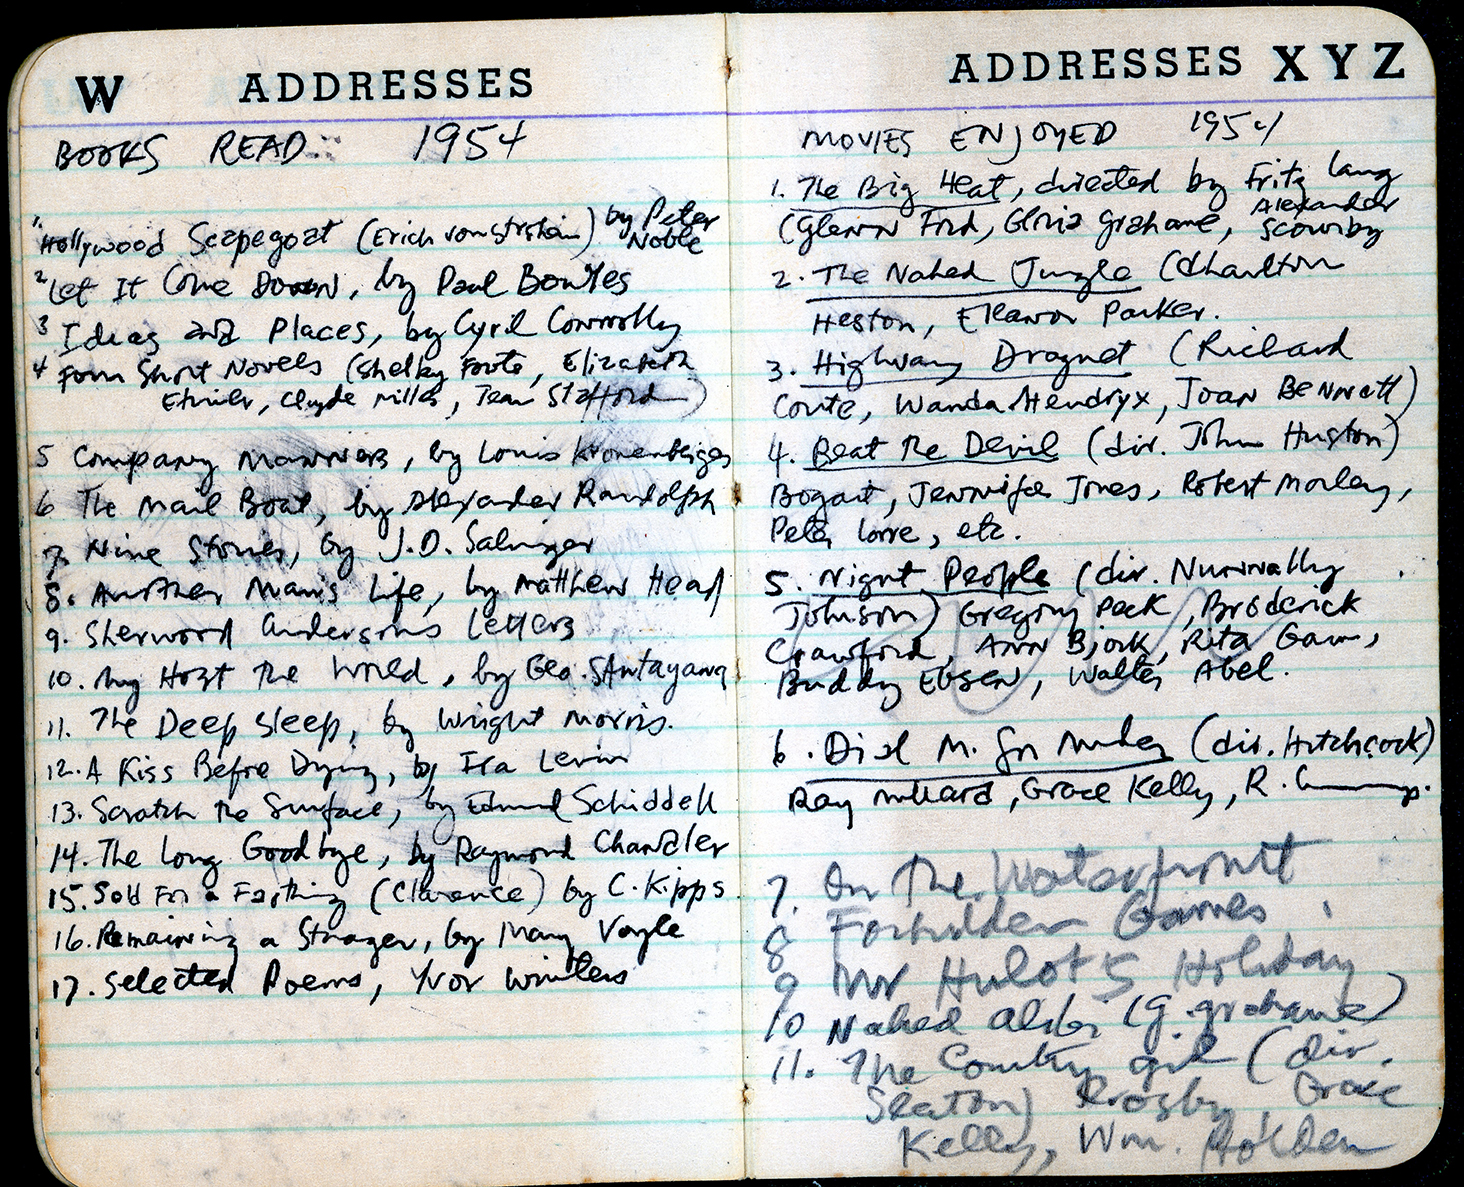 W ADDRESSES
BOOKS READ 1954
1. Hollywood Scapegoat (Erich von Stroheim) by Peter
Noble
2 Let It Come Down, by Paul Bowles
3 Ideas and Places, by Cyril Connolly
4 Four Short Novels (Shelby Foote, Elizabeth
Etnier, Clyde Miller, Jean Stafford)
5 Company Manners, by Louis Kronenberger
6 The Mail Boat, by Alexander Randolph
7. Nine Stories, by J.D. Salinger
8. Another Man's Life, by Matthew Head
9. Sherwood Andersons Letters
10. My Host the World, by Geo. Santayana
11. The Deep Sleep, by Wright Morris.
12. A Kiss Before Dying, by Ira Levin
13. Scratch the Surface, by Edmund Schiddell
14. The Long Goodbye, by Raymond Chandler
15. Sold For a Farthing (Clarence) by C. Kipps
16. Remaining a Stranger, by Mary Voyle
17. Selected Poems, Yvor Winters
ADDRESSES X Y Z
MOVIES ENJOYED 1954
1. The Big Heat, directed by Fritz Lang
(Glenn Ford, Gloria Grahame, Alexander
Scourby
2. The Naked Jungle (Charlton
Heston, Eleanor Parker.
3. Highway Dragnet (Richard
Conte, Wanda Hendryx, Joan Bennett)
4. Beat the Devil (dir. John Huston)
Bogart, Jennifer Jones, Robert Morley,
Peter Lorre, etc.
5. Night People (dir. Nunnally
Johnson) Gregory Peck, Broderick
Crawford, Ann Bjork, Rita Gam,
Buddy Ebsen, Walter Abel.
6. Dial M. for Murder (dir. Hitchcock)
Ray Milland, Grace Kelly, R.
7. On The Waterfront
8 Forbidden Games
9 Mr Hulot's Holiday
10 Naked Alibi (G. Grahame)
11. The Country girl (dir.
Seaton) Crosby, Grace
Kelly, Wm. Holden